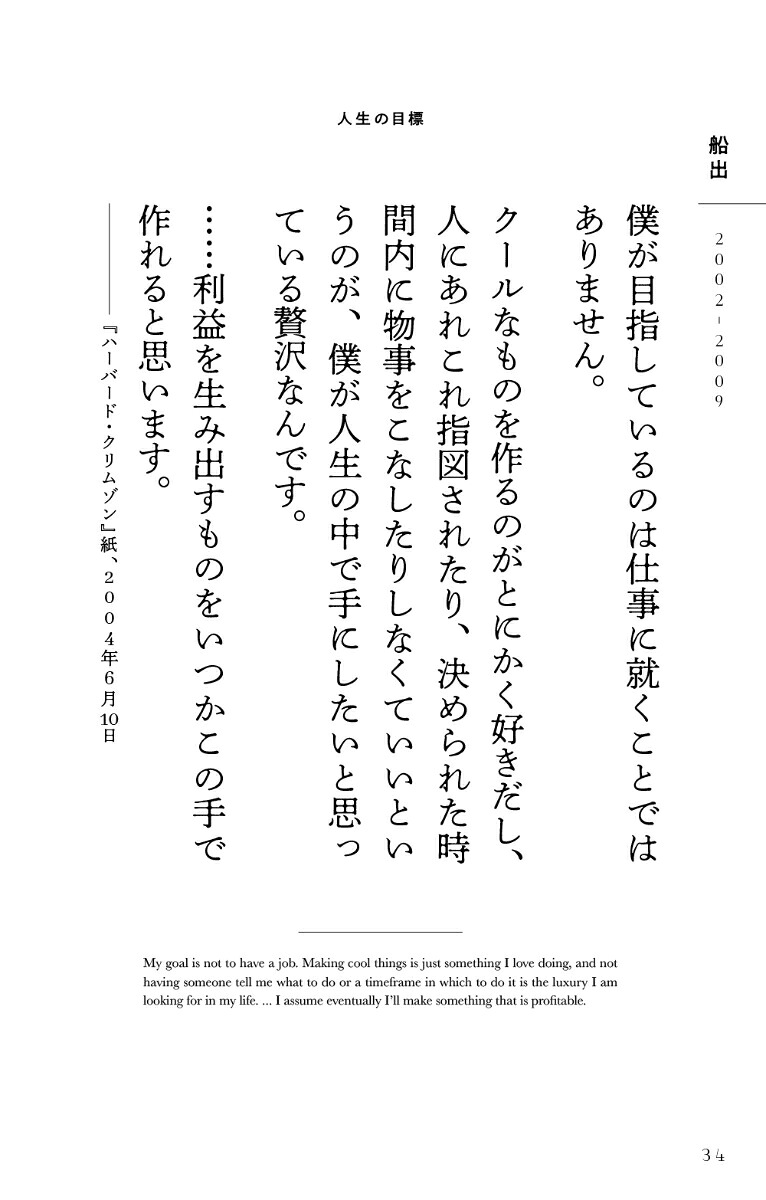 船出
2002-2009
人生の目標
僕が目指しているのは仕事に就くことでは
ありません。
クールなものを作るのがとにかく好きだし、
人にあれこれ指図されたり、決められた時
間内に物事をこなしたりしなくていいとい
うのが、僕が人生の中で手にしたいと思っ
ている贅沢なんです。
……利益を生み出すものをいつかこの手で
作れると思います。
――『ハーバード・クリムゾン』紙、2004年6月10日
My goal is not to have a job. Making cool things is just something I love doing, and not
having someone tell me what to do or a timeframe in which to do it is the luxury I am
looking for in my life. ... I assume eventually I’ll make something that is profitable.
34